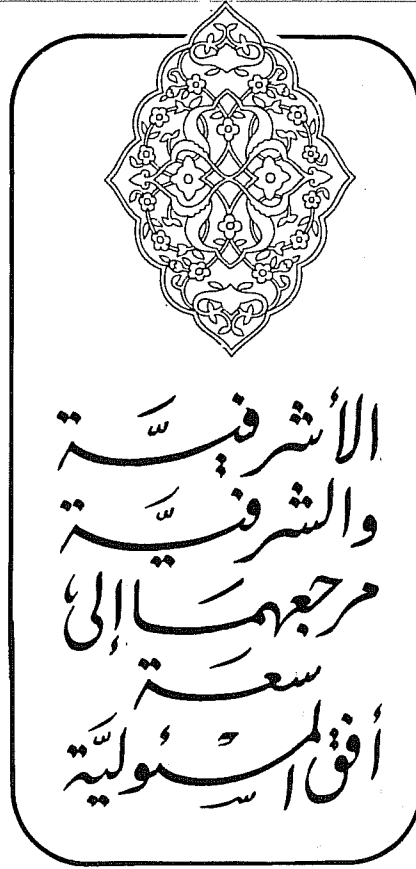 الأشرفيّة
والشرفيّة
مرجعهما إلى
سعة
أفق المسئوليّة